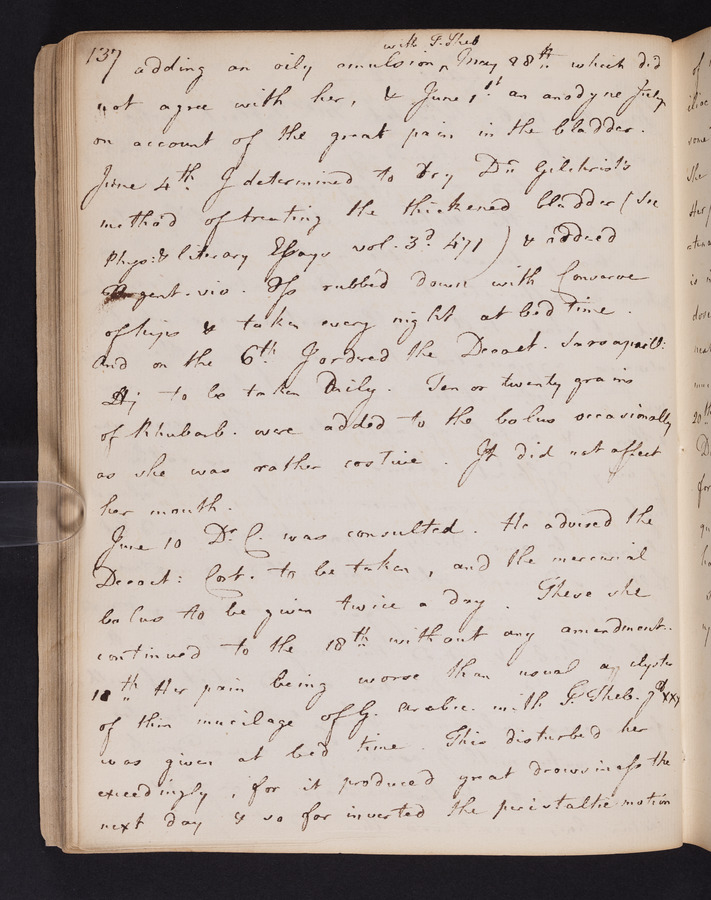 137
with T. Theb
adding an oily emulsion ^ May 28th which did
not agree with her, & June 1st an anodyne Julep
on account of the great pain in the bladder.
June 4th I determined to try Dr. Gilchrist's
method of treating the thickened bladder (See
Phys: & literary Essays vol. 3d 471) & added
Argent. viv. ℈ss rubbed down with Conserve
of hips & taken every night at bed time.
And on the 6th I ordered the Decoct. Sarsaparill:
to be taken Daily. Ten or twenty grains
of Rhubarb. were added to the bolus occasionally
as she was rather costive. It did not affect
her mouth.
June 10 Dr. C. was consulted. He advised the
Decoct: Cort. to be taken, and the mercurial
bolus to be given twice a Day. These she
continued to the 18th without any amendment.
18th Her pain being worse than usual a clyster
of thin mucilage of G. arabic. with T. Theb. gtt xxx
was given at bed time. This disturbed her
exceedingly, for it produced great drowsiness the
next day & so far inverted the peristaltic motion